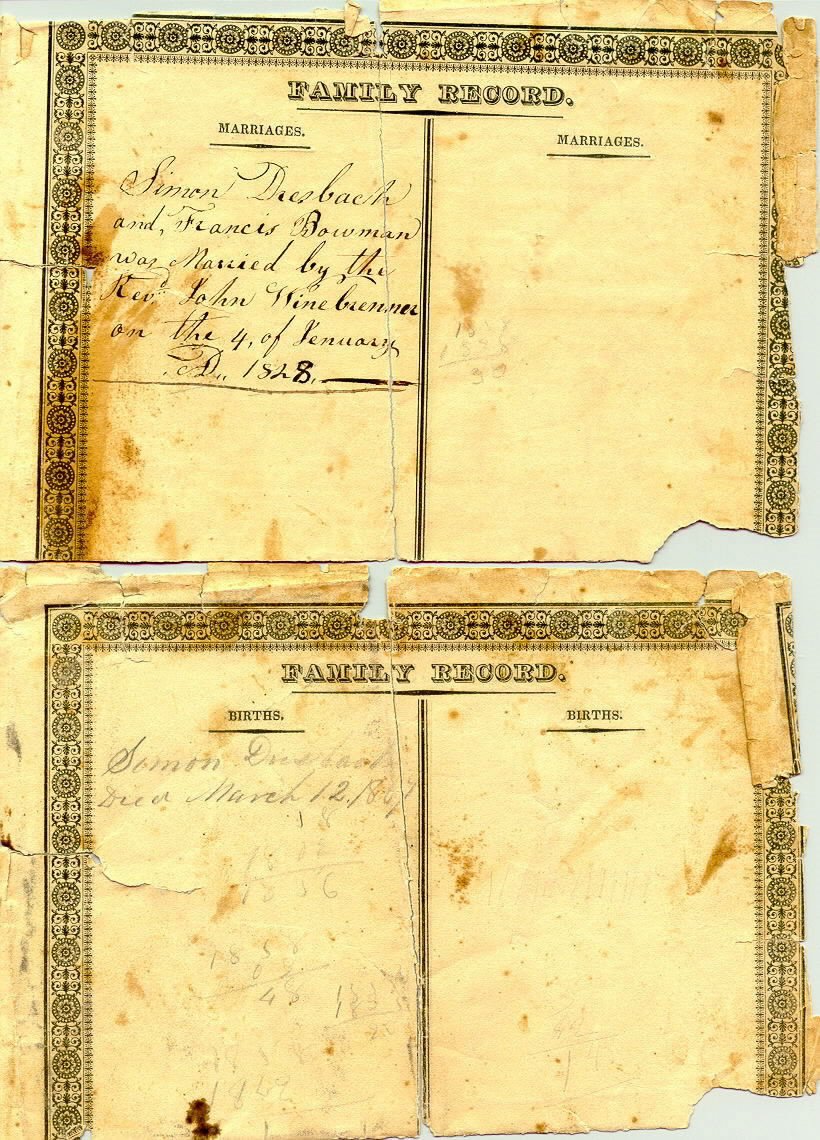 FAMILY RECORD.
MARRIAGES.
Simon Dresbach
and, Francis Bowman
was Married by the
Revd. John Winebrenner
on the 4, of Jenuary
A.D. 1828.
MARRIAGES.
18
1828
FAMILY RECORD.
BIRTHS.
Somon Dresbach
Died March 12, 1867
18
1836
1858
48
18
1822
BIRTHS.